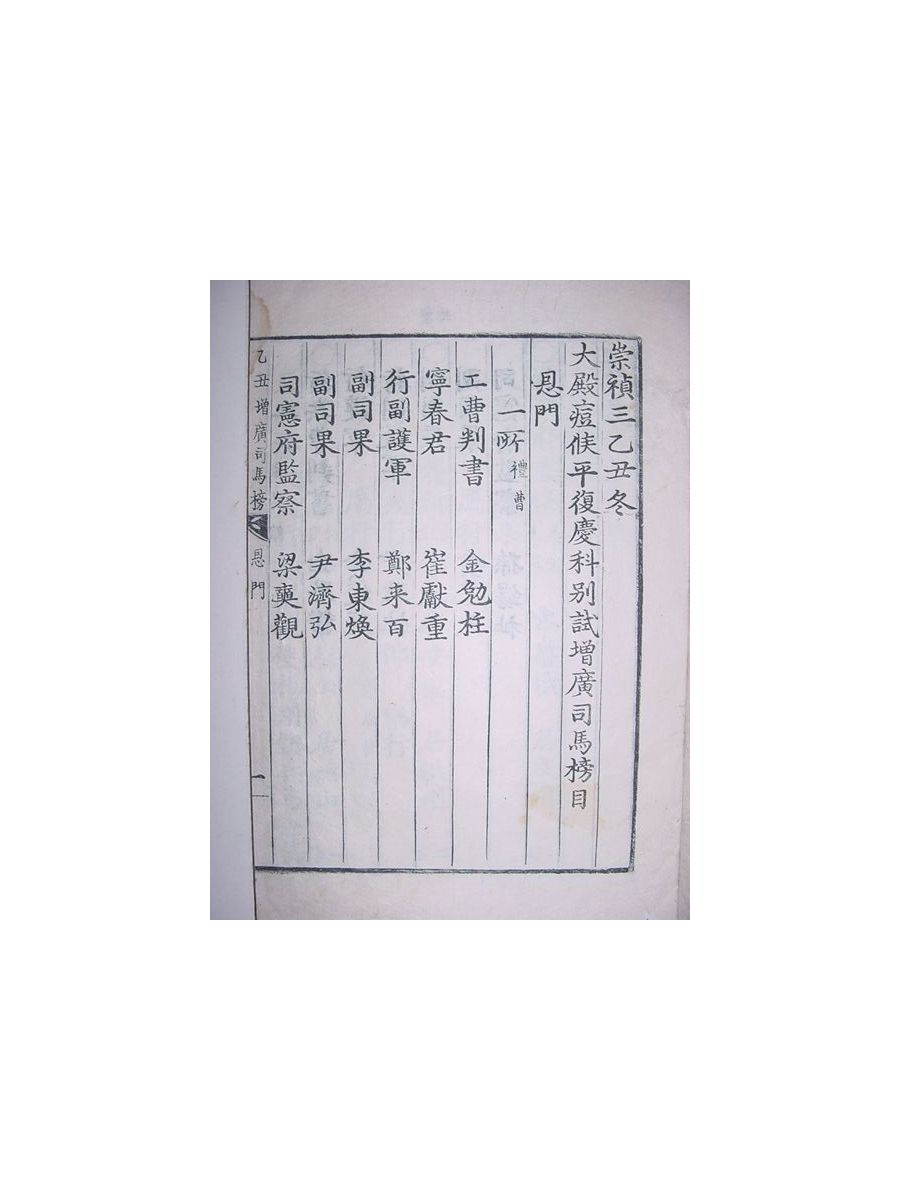 崇禎三乙丑冬
大殿痘候平復慶科别試增廣司馬榜目
恩門
一所 禮曹
工曹判書 金勉柱
寧春君 崔獻重
行副護軍 鄭来百
副司果 李東煥
副司果 尹濟弘
司憲府監察 梁奭觀
乙丑增廣司馬榜 恩門 一